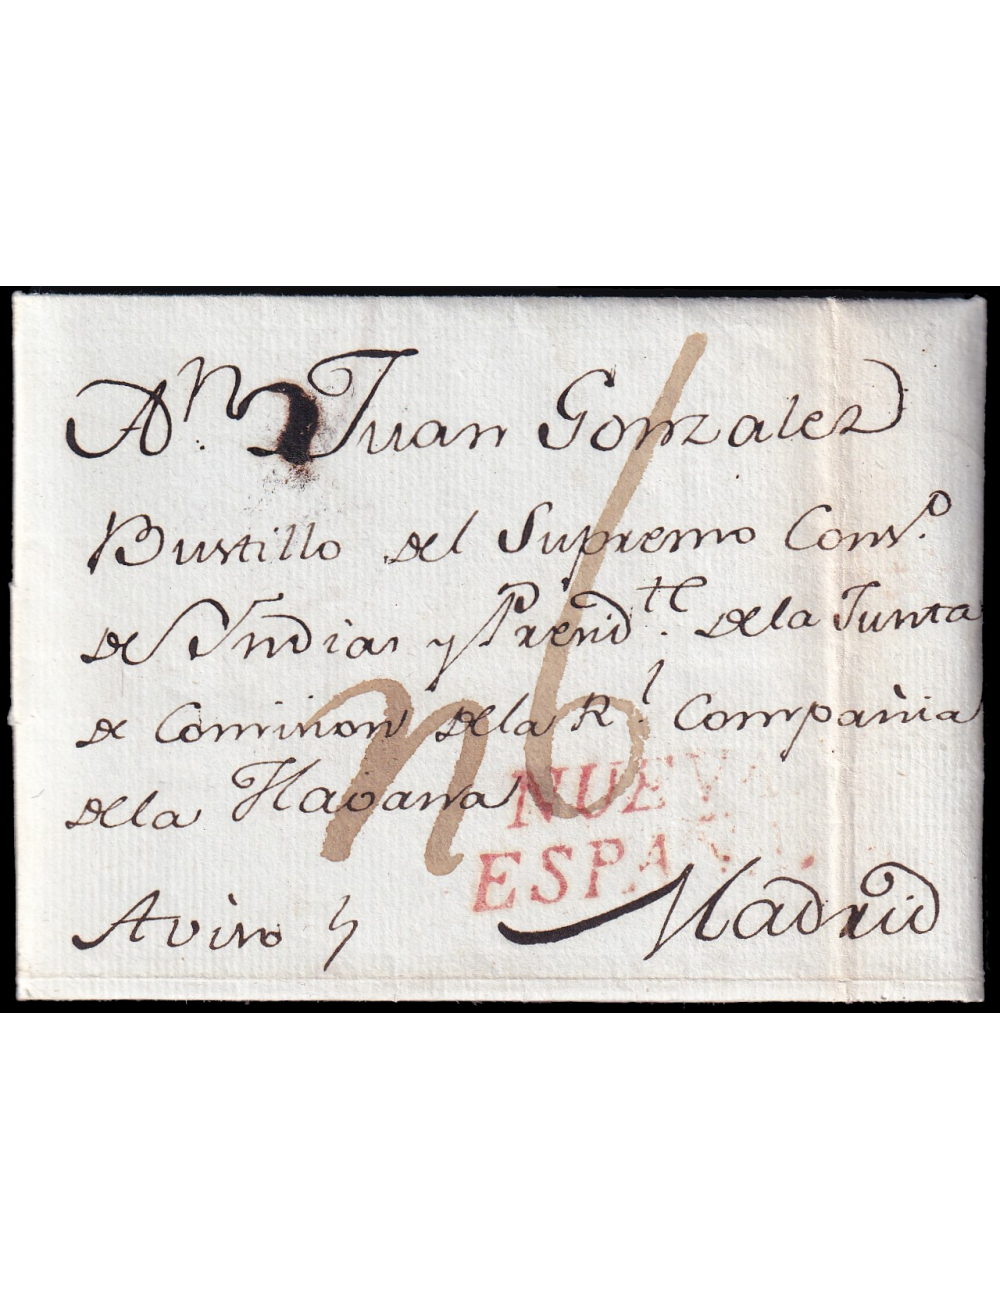 A Dn. Juan Gonzalez
Bustillo del Supremo Conso.
de Yndias y Presidte. de la Junta
de Comision de la Rl. Compañia
de la Havana
n6
NUEVA
ESPAÑA
Aviso
Madrid